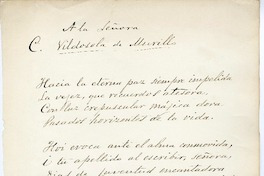 A la Señora
C. Vildosola de Murillo
Hacia la eterna paz siempre impelida
La vejez, que recuerdos atesora
Con luz crepuscular májica dora
Pasados horizontes de la vida.
Hoi evoca ante el alma conmovida,
i tu apellido al escribir, señora,
Dias de juventud encantadora